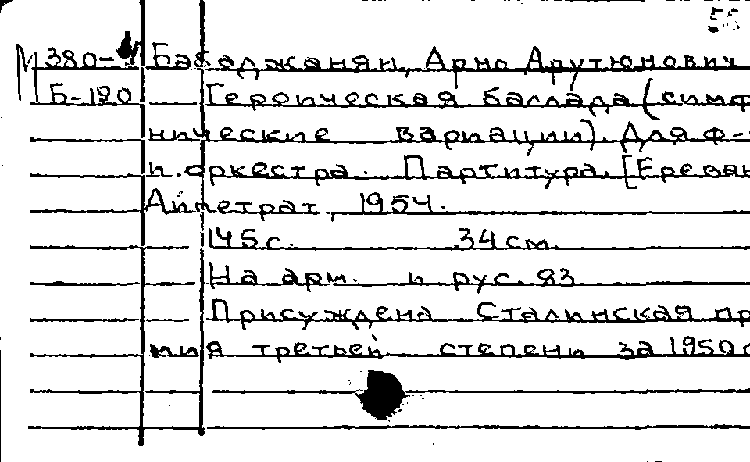 56
М380- Бабаджанян, Арно Арутюнович
Б-120 Героическая баллада (симф
нические вариации). Для ф-
и оркестра. Партитура. [Ереван
Айпетрат, 1954.
145 с. 34 см.
На арм. и рус. яз
Присуждена Сталинская пр
мия третьей степени за 1950